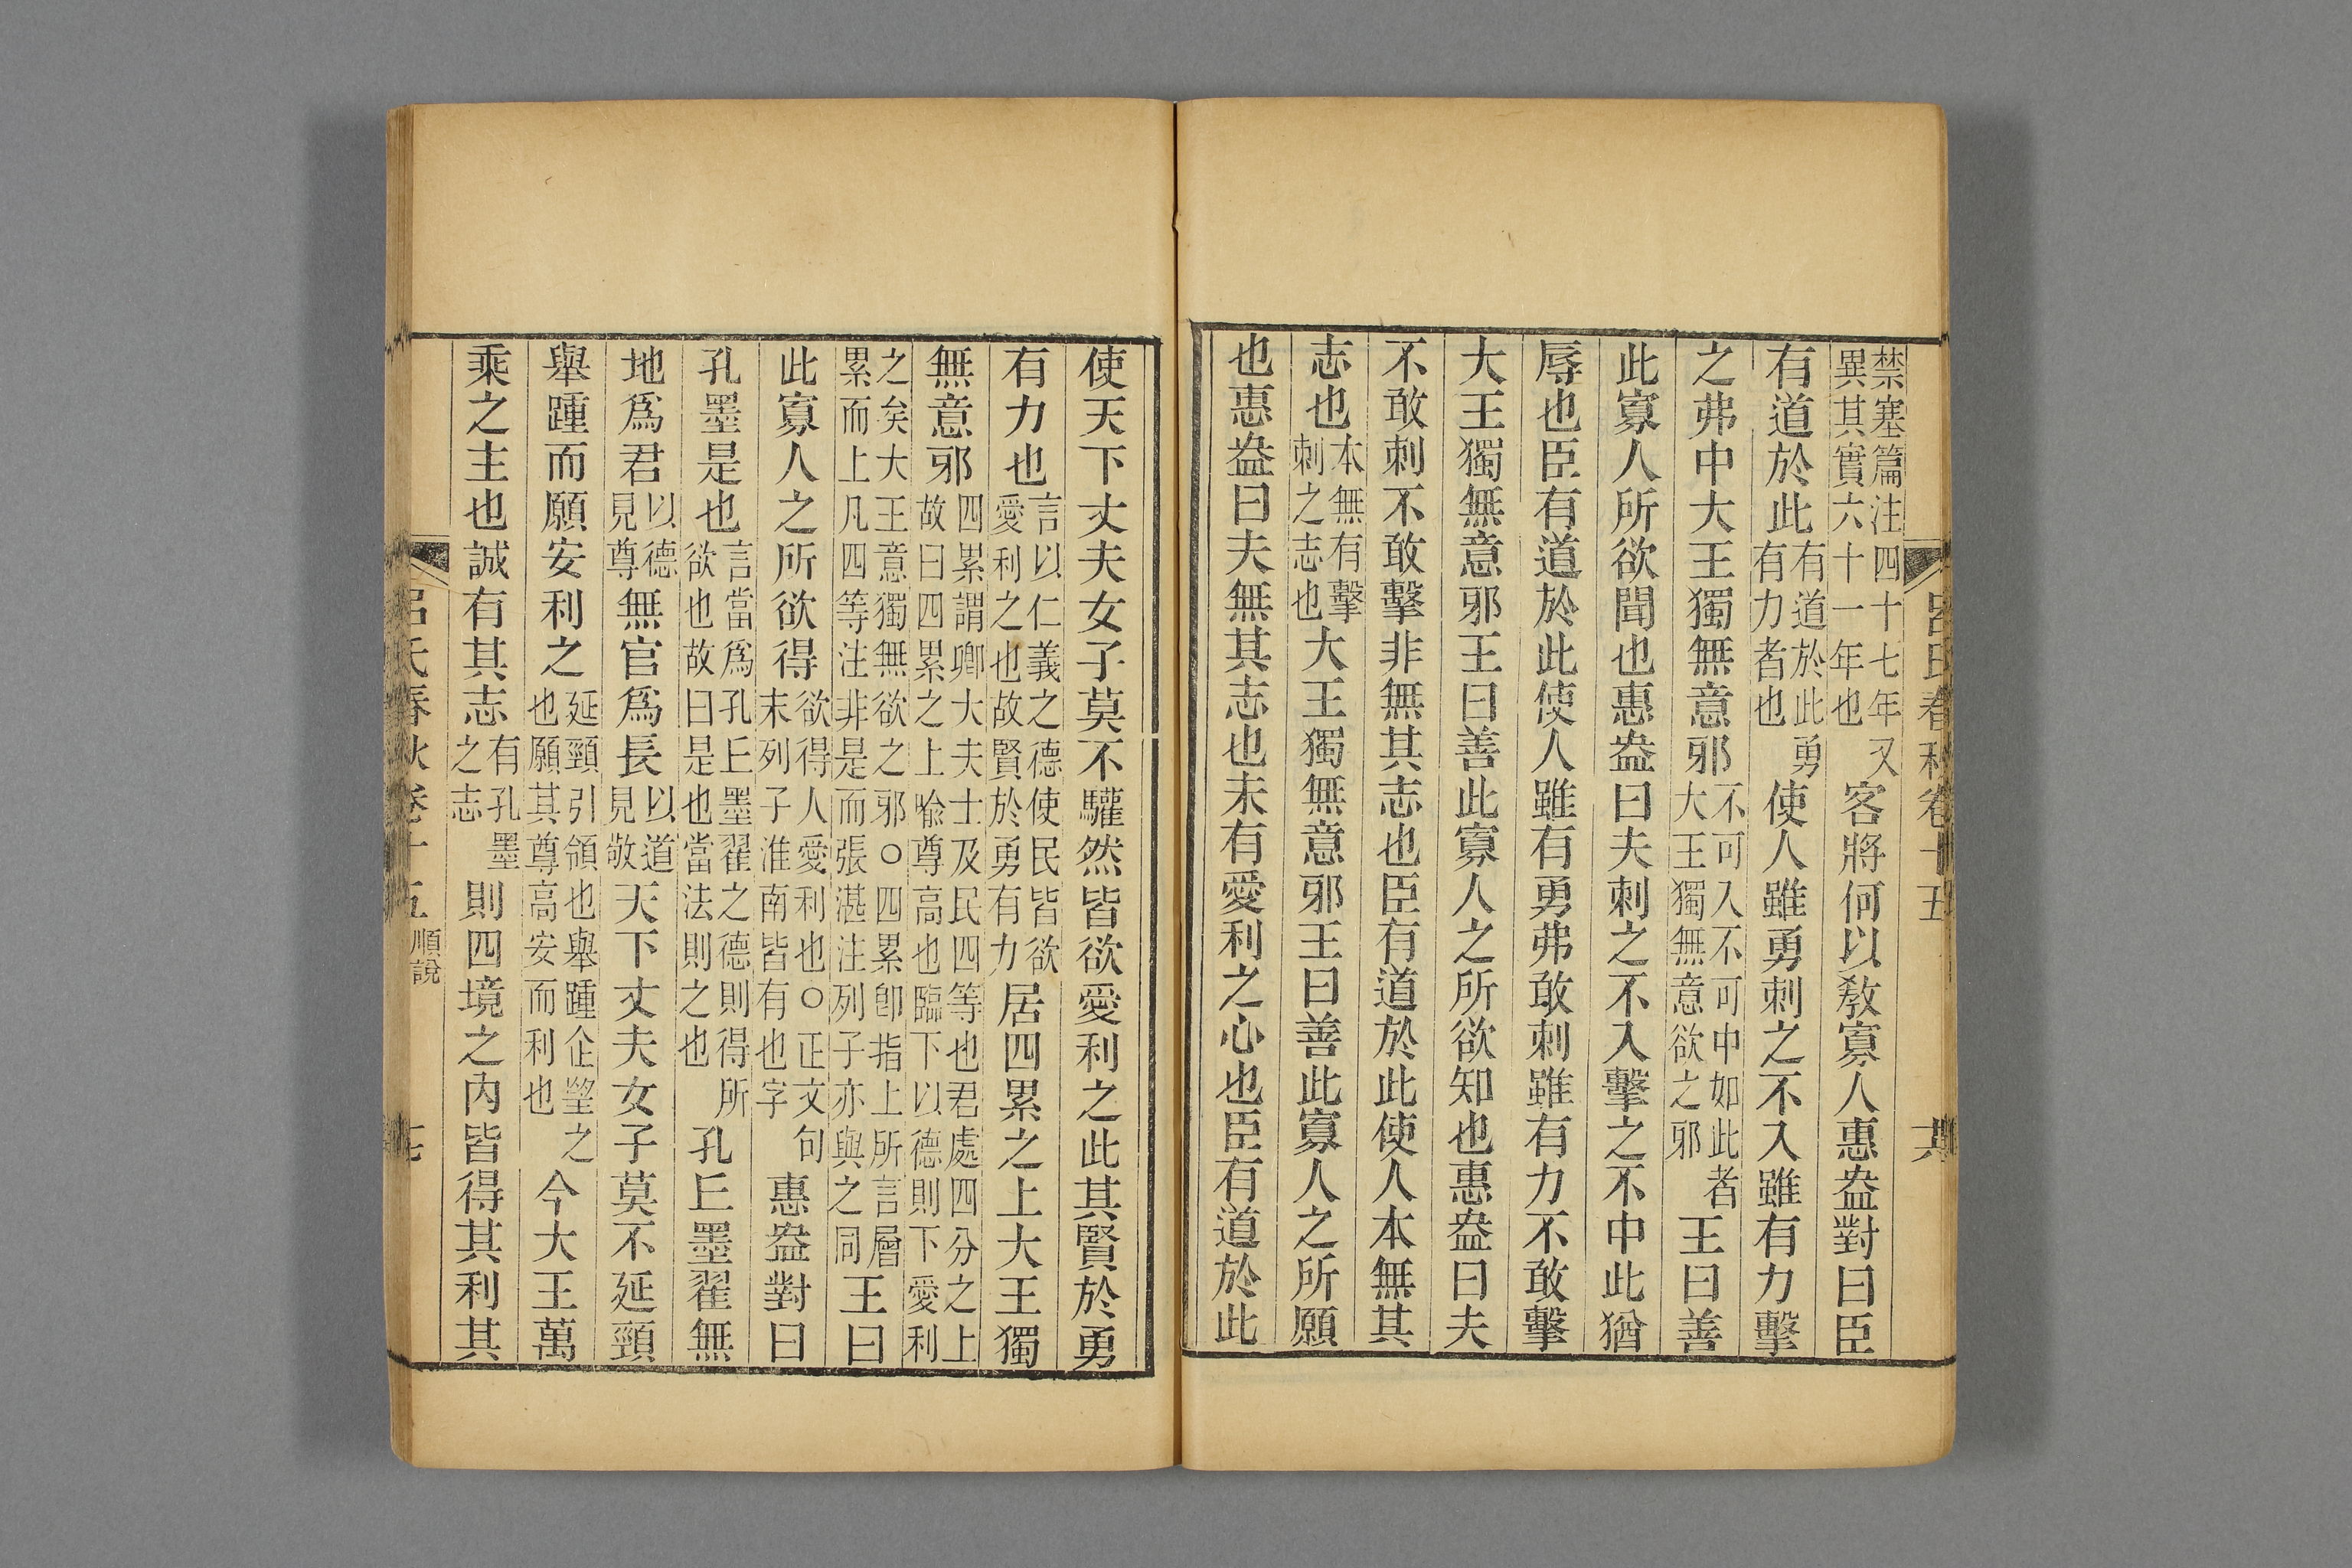 呂氏春秋卷十五
禁塞篇注四十七年又異其實六十一年也客將何以敎寡人惠盎對曰臣
有道於此有道於此勇有力者也使人雖勇刺之不入雖有力擊
之弗中大王獨無意邪不可入不可中如此者大王獨無意欲之邪王曰善
此寡人所欲聞也惠盎曰夫刺之不入擊之不中此猶
辱也臣有道於此使人雖有勇弗敢刺雖有力不敢擊
大王獨無意邪王曰善此寡人之所欲知也惠盎曰夫
不敢刺不敢擊非無其志也臣有道於此使人本無其
志也本無有擊刺之志也大王獨無意邪王曰善此寡人之所願
也惠盎曰夫無其志也未有愛利之心也臣有道於此
使天下丈夫女子莫不驩然皆欲愛利之此其賢於勇
有力也言以仁義之德使民皆欲愛利之也故賢於勇有力居四累之上大王獨
無意邪四累謂卿大夫士及民四等也君處四分之上故曰四累之上喻尊高也臨下以德則下愛利
之矣大王意獨無欲之邪○四累卽指上所言層累而上凡四等注非是而張湛注列子亦與之同王曰
此寡人之所欲得欲得人愛利也○正文句末列子淮南皆有也字惠盎對曰
孔墨是也言當爲孔丘墨翟之德則得所欲也故曰是也當法則之也孔丘墨翟無
地爲君以德見尊無官爲長以道見敬天下丈夫女子莫不延頸
舉踵而願安利之延頸引領也舉踵企望之也願其尊高安而利也今大王萬
乘之主也誠有其志有孔墨之志則四境之內皆得其利其
呂氏春秋卷十五 順說 十七